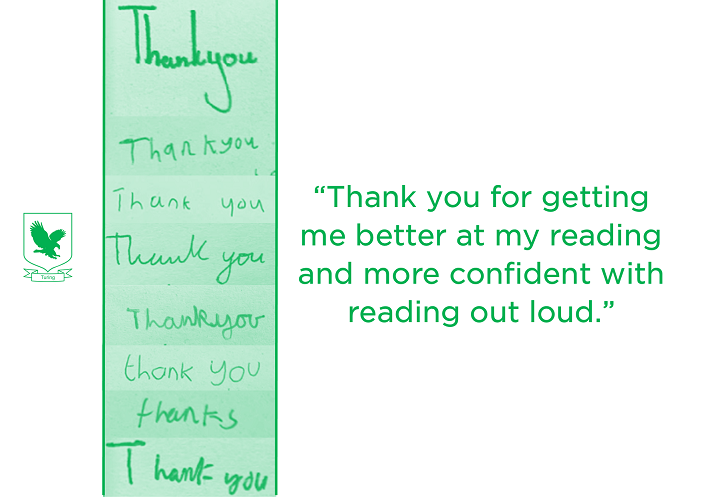 Thankyou
Thankyou
Thank you
Thank you
Thankyou
thank you
thanks
Thank you
Turing
“Thank you for getting
me better at my reading
and more confident with
reading out loud.”